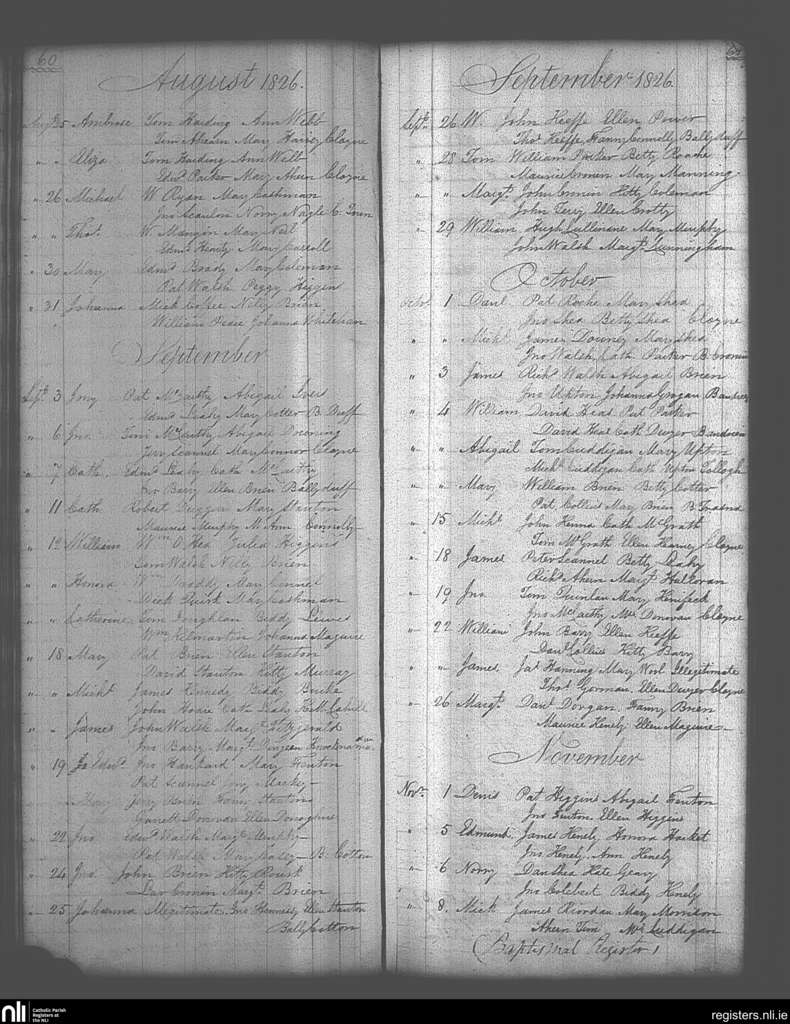 60
August 1826.
Augt 25 Ambrose Tom Harding Ann Webt
Tim Ahearn Mary Cloyne
" " Eliza Tom Harding Ann Webt
Edmd Parker Mary Ahern Cloyne
" 26 Michael W. Ryan Mary Cashman
Jno Scanlon Norry Nagle C. Town
" " Thos. W. Mangin Mary Neil
Edmd Hearty Mary Carroll
" 30 Mary Edmd Boddy Mary Coleman
Pat Walsh Peggy Higgin
" 31 Johanna Mick Nelly Brien
William Johanna Whitehan
September
Sept. 3 Jmy Pat McCarthy Abigail Ives
Edmd Leahy Mary Cotter B. Duff
" 6 Jno Tom McCarthy Abigail
Jery Scannel Mary Connor Cloyne
" 7 Cath. Edmd Leahy Cath McCarthy
Jno Barry Ellen Brien Ballyduff
" 11 Cath Robert Duggan Mary Stanton
Maurice Murphy M. Ann Connelly
" 12 William Wm O'Hea Julia Higgins
Tom Walsh Nelly Brien
" " Honora Wm Mary
Mick Quirk Mary Cashman
" " Catherine Tom Biddy Lewis
Wm Kelmartin Johanna Maguire
" 18 Mary Pat Brien Ellen Stanton
David Stanton Kitty Murray
" " Michl James Kennedy Biddy Burke
John Hoare Cath Leahy Kitt Cahill
" " James John Walsh Margt Fitzgerald
Jno Barry Margt Dingeen
" 19 Edmd Jno Hankard Mary Fenton
Pat Scannel Jmy Mackey
Mary Jery Brien Honry Stanton
Garrett Donovan Ellen Donoghue
" 22 Jno Edmd Walsh Margt Murphy
Pat Walsh Mary Casey B. Cotton
" 24 Jno John Brien Kitty Quirk
Dav Cronin Margt Brien
" 25 Johanna Illegitimate Jno Hennessy Ellen Stanton
Ballycotton
September 1826.
Sept. 26 W. John Keeffe Ellen Power
Thos Keeffe, Fanny Connelly Ballyduff
" 28 Tom William Parker Betty Roache
Maurice Cronen Mary Manning
" " Margt. John Cronin Kitty Coleman
John Terry Ellen Cotty
" 29 William Hugh Cullinane Mary Murphy
John Walsh Margt Cunningham
October
Octr. 1 Danl Pat Roche Mary Shea
Jno Shea Betty Shea Cloyne
" " Michl James Downey Mary Shea
Jno Walsh, Cath Parker B.
" 3 James Richd Walsh Abigail Brien
Jno Upton Johanna Grogan
" 4 William David Head Pat Parker
David Head Cath Dwyer
" " Abigail Tom Cuddigan Mary Upton
Michl Cuddigan Cath Upton
" " Mary William Brien Betty Cotter
Pat Collins Mary Brien B.
" 15 Michl John Kenna Cath McGrath
Tom McGrath Ellen Kearney Cloyne
" 18 James Peter Scannel Betty Leahy
Richd Ahern Margt Halloran
" 19 Jno Tom Quinlan Mary Henifeck
Jno McCarthy Mrs Donovan Cloyne
" 22 William John Barry Ellen Keeffe
Danl Collins Kitty Barry
" " James Jas Hanning Mary Noel Illegitimate
Thos Gorman, Ellen Dwyer Cloyne
" 26 Margt. Danl Dorgan, Hanry Brien
Maurice Henely Ellen Maguire
November
Novr. 1 Denis Pat Higgins Abigail Fenton
Jno Fenton Ellen Higgins
" 5 Edmund James Henely Honora Hacket
Jno Henely, Ann Henely
" 6 Norry Dan Shea Kate Geary
Jno Biddy Henely
" 8. Mick James Riordan Mary Morrison
Ahern Tim Mrs Cuddigan
Baptismal Register 1
nli
Catholic Parish Registers at the NLI
registers.nli.ie